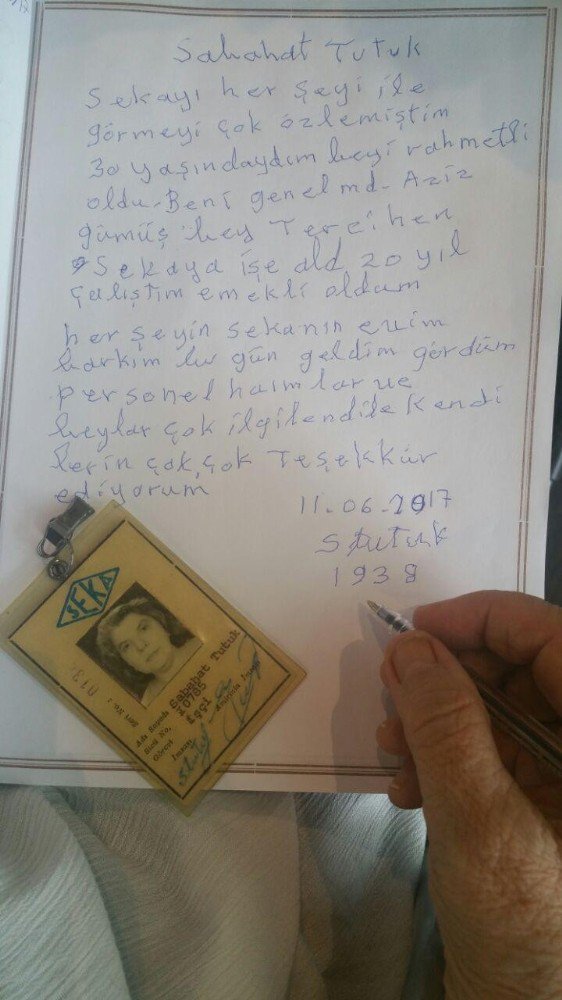 Sabahat Tutuk
Sekayı her şeyi ile
görmeyi çok özlemiştim
30 yaşındaydım beyi rahmetli
oldu. Beni genel md. Aziz
gümüş bey Terc'ihen
Sekaya işe ald 20 yıl
çalıştım emekli oldum
her şeyin sekanın evim
barkım bu gün geldim gördüm
personel haımlar ve
beylar çok ilgilendile Kendi
lerin çok, çok Teşekkür
ediyorum
11.06.2017
S Tutuk
1938
SEKA
Seri No. : 013
Adı Soyadı Sabahat Tutuk
Sicil No. 10785
Görevi İşçi
İmzası
Amirinin İmzası